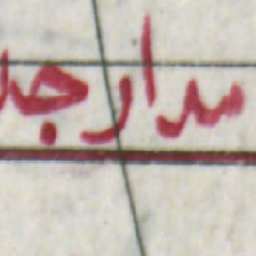 مدار جد